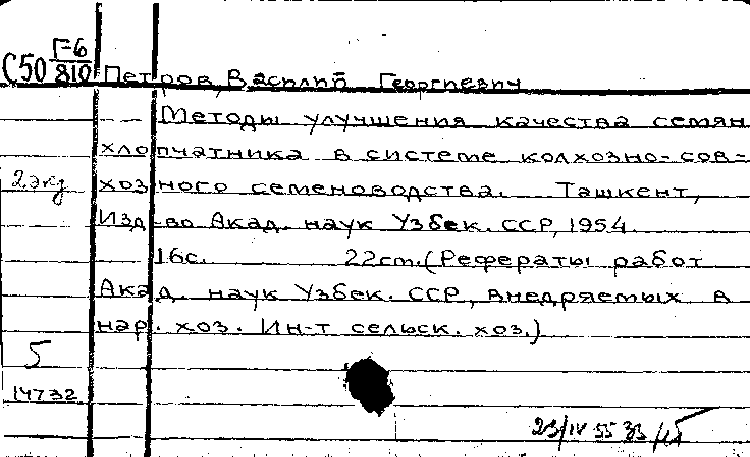 С50 Г-6
810
Петров, Василий Георгиевич
Методы улучшения качества семян
хлопчатника в системе колхозно-сов-
2 экз
хозного семеноводства. Ташкент,
Изд-во Акад. наук Узбек. ССР, 1954.
16с. 22см. (Рефераты работ
Акад. наук Узбек. ССР, внедряемых в
нар. хоз. Ин-т сельск. хоз.)
5
14732
23/IV 55